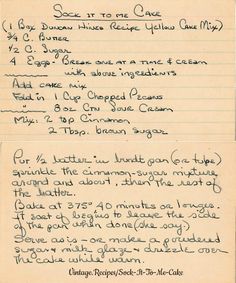 Sock it to me Cake
(1 Box Duncan Hines Recipe Yellow Cake Mix)
3/4 C. Butter
1/2 C. Sugar
4 Eggs - Break one at a time & cream
with above ingredients
Add cake mix
Fold in 1 Cup Chopped Pecans
" 8 oz Ctn Sour Cream
Mix: 2 tsp Cinnamon
2 Tbsp. brown sugar
Put 1/2 batter in bundt pan (or type)
sprinkle the cinnamon-sugar mixture
around and about, then the rest of
the batter.
Bake at 375° 40 minutes or longer.
It sort of begins to leave the side
of the pan when done (she say.)
Serve as is - or make a powdered
sugar & milk glaze & drizzle over
the cake while warm.
Vintage.Recipes/Sock-It-To-Me-Cake